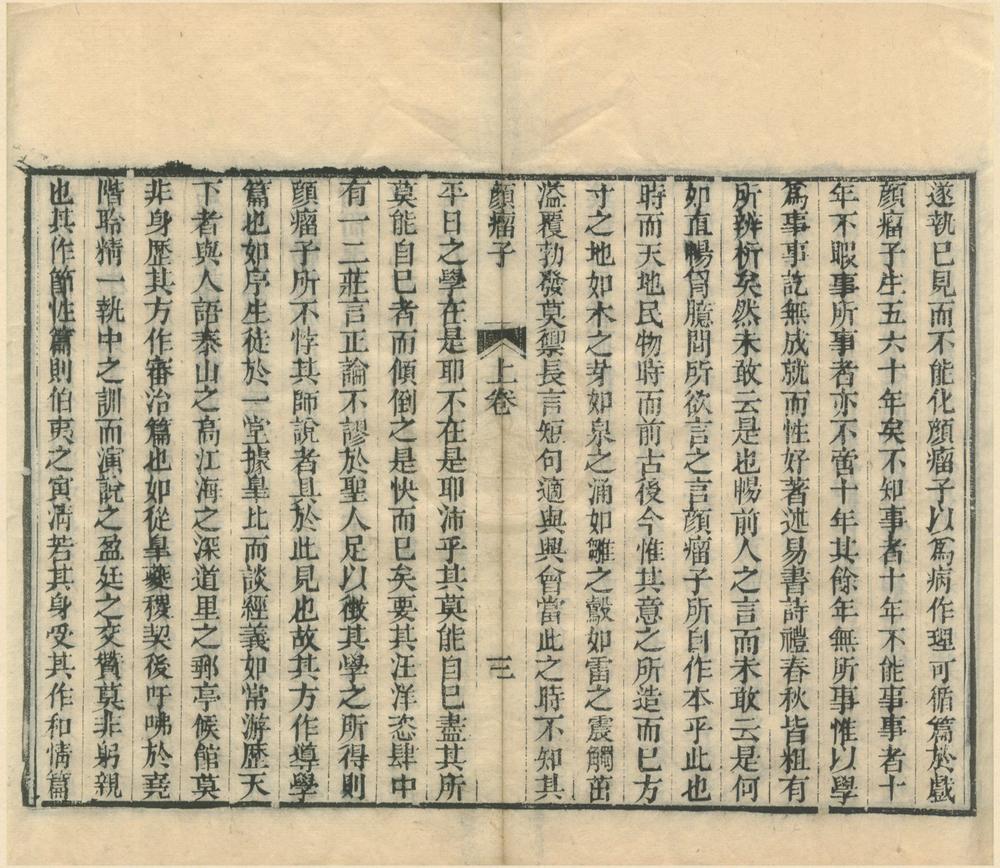 遂執已見而不能化顏瘤子以爲病作理可循篇於戲
顏瘤子生五六十年矣不知事者十年不能事事者十
年不暇事所事者亦不啻十年其餘年無所事惟以學
爲事事訖無成就而性好著述易書詩禮春秋皆粗有
所辨析矣然未敢云是也暢前人之言而未敢云是何
如直暢胷臆間所欲言之言顏瘤子所自作本乎此也
時而天地民物時而前古後今惟其意之所造而巳方
寸之地如木之芽如泉之涌如雛之鷇如雷之震觸茁
溢覆勃發莫禦長言短句適與興會當此之時不知其
顏瘤子 上卷 三
平日之學在是耶不在是耶沛乎其莫能自巳盡其所
莫能自巳者而傾倒之是快而巳矣要其汪洋恣肆中
有一二莊言正論不謬於聖人足以徵其學之所得則
顏瘤子所不悖其師說者具於此見也故其方作導學
篇也如序生徒於一堂據臯比而談經義如常游歷天
下者與人語泰山之高江海之深道里之郵亭候館莫
非身歷其方作審治篇也如從臯夔稷契後吁咈於堯
階聆精一執中之訓而演說之盈廷之交贊莫非躬親
也其作節性篇則伯夷之寅清若其身受其作和情篇